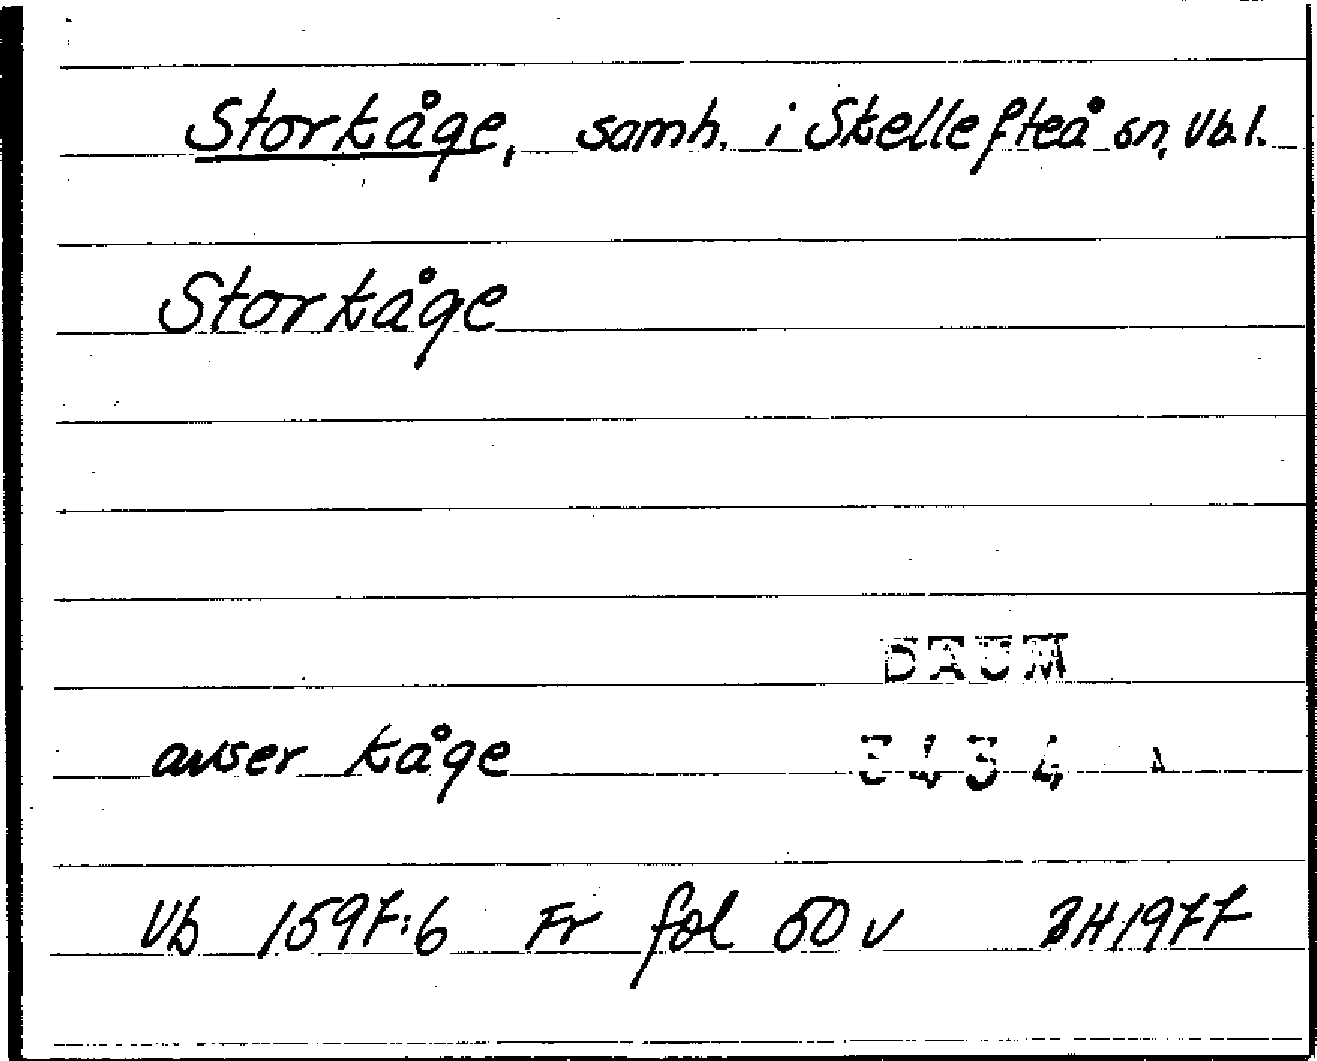 Storkåge, samh. i Skellefteå sn, Vb.l.
Storkåge
DAUM
avser Kåge 3434 A
Vb 1597:6 Fr fol 50 v BH 1977